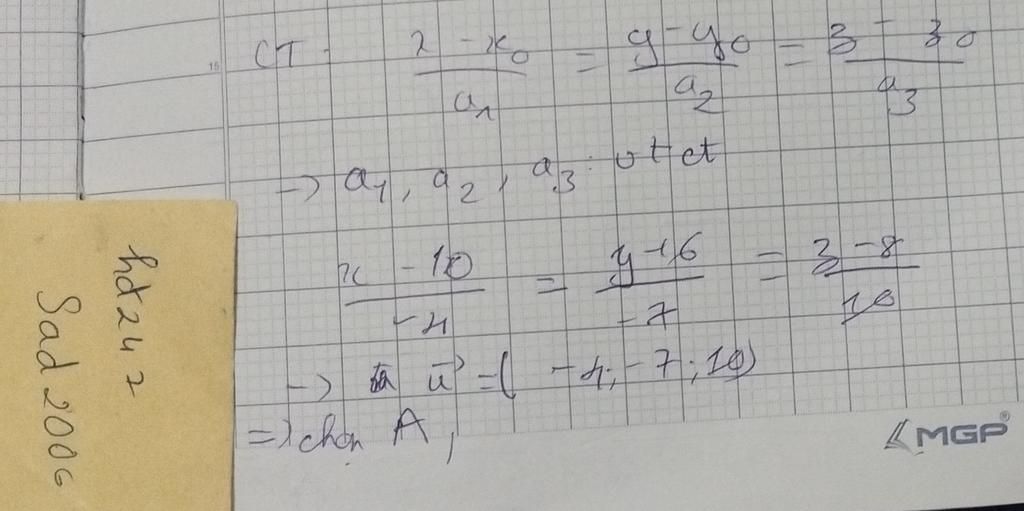 CT: (x - x₀)/a₁ = (y - y₀)/a₂ = (z - z₀)/a₃
-> a₁, a₂, a₃: vtct
(x - 10)/-4 = (y + 6)/-7 = (z - 8)/10
-> u⃗ = (-4; -7; 10)
=> chọn A,
MGP®
hd247
Sad2006
15